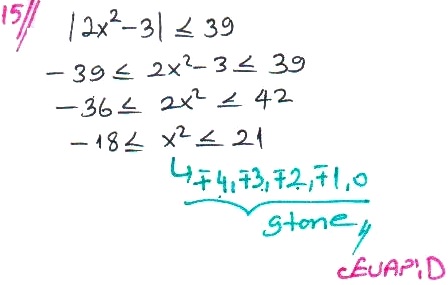 15//
|2x²-3| ≤ 39
-39 ≤ 2x²-3 ≤ 39
-36 ≤ 2x² ≤ 42
-18 ≤ x² ≤ 21
↳ ∓4, ∓3, ∓2, ∓1, 0
9 tane //
CEVAP: D